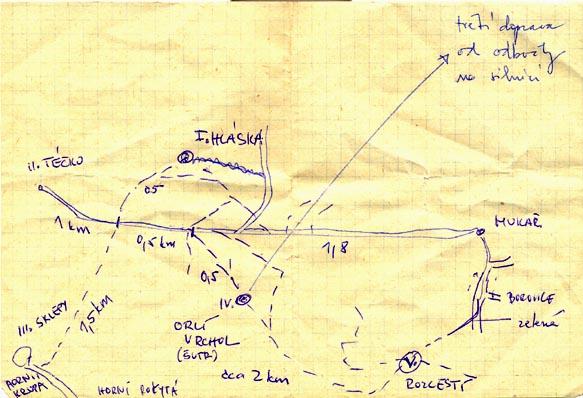 třetí doprava
od odbočky
na silnici
I. HLÁSKA
II. TÉČKO
0,5
1 km
0,5 km
1,8
MUKAŘ
0,5
III. SKLEPY
1,5 km
IV.
ORLÍ
VRCHOL
(ŠUTR)
I BOROVICE
zelená
cca 2 km
V.
ROZCESTÍ
HORNÍ
KRUPÁ
HORNÍ ROKYTÁ